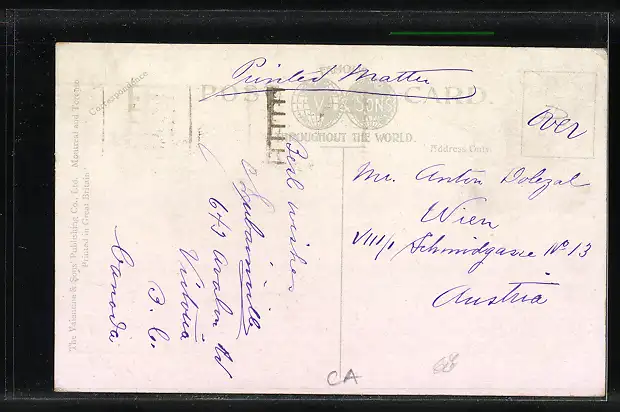 Printed Matter
FAMOUS
POST CARD.
V & SONS
THROUGHOUT THE WORLD.
Correspondence
Address Only
over
Mr. Anton Dolezal
Wien
VIII/1 Schmidgasse No 13
Austria
Best wishes
643 Avalon Rd
Victoria
B. C.
Canada
The Valentine & Sons' Publishing Co., Ltd. Montreal and Toronto
Printed in Great Britain
CA